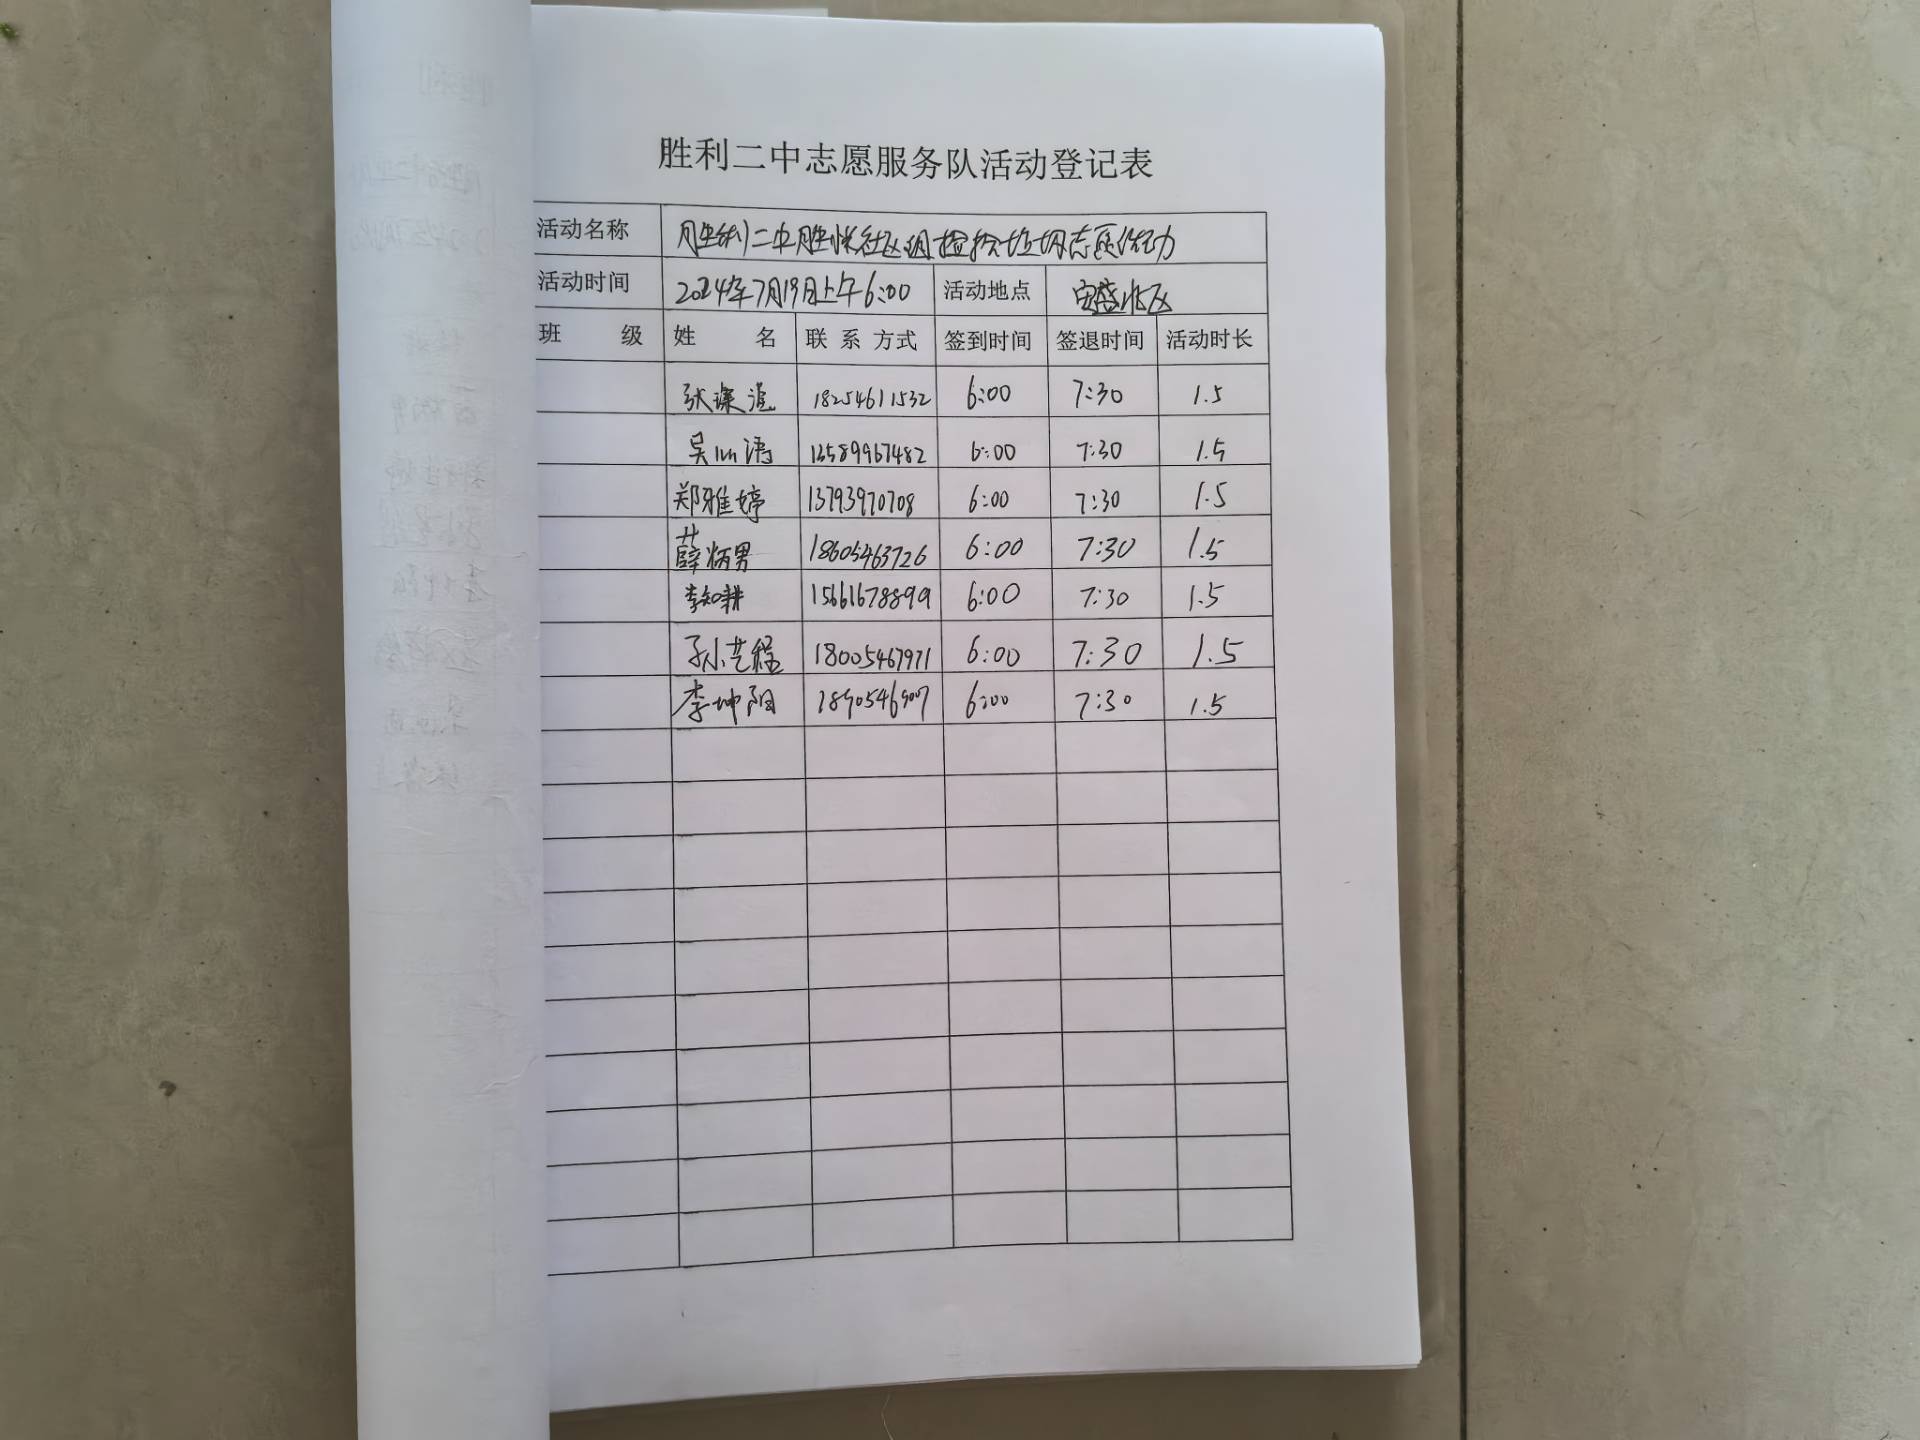 胜利二中志愿服务队活动登记表
活动名称 胜利二中胜悦社区捡拾垃圾志愿活动
活动时间 2024年7月19日上午6:00 活动地点 安盛北区
班 级 姓 名 联系方式 签到时间 签退时间 活动时长
张 18254611532 6:00 7:30 1.5
吴 13589967482 6:00 7:30 1.5
郑雅婷 13793970708 6:00 7:30 1.5
薛炳男 18605463726 6:00 7:30 1.5
李知耕 15661678899 6:00 7:30 1.5
孙艺程 18005467971 6:00 7:30 1.5
李坤阳 18905469007 6:00 7:30 1.5